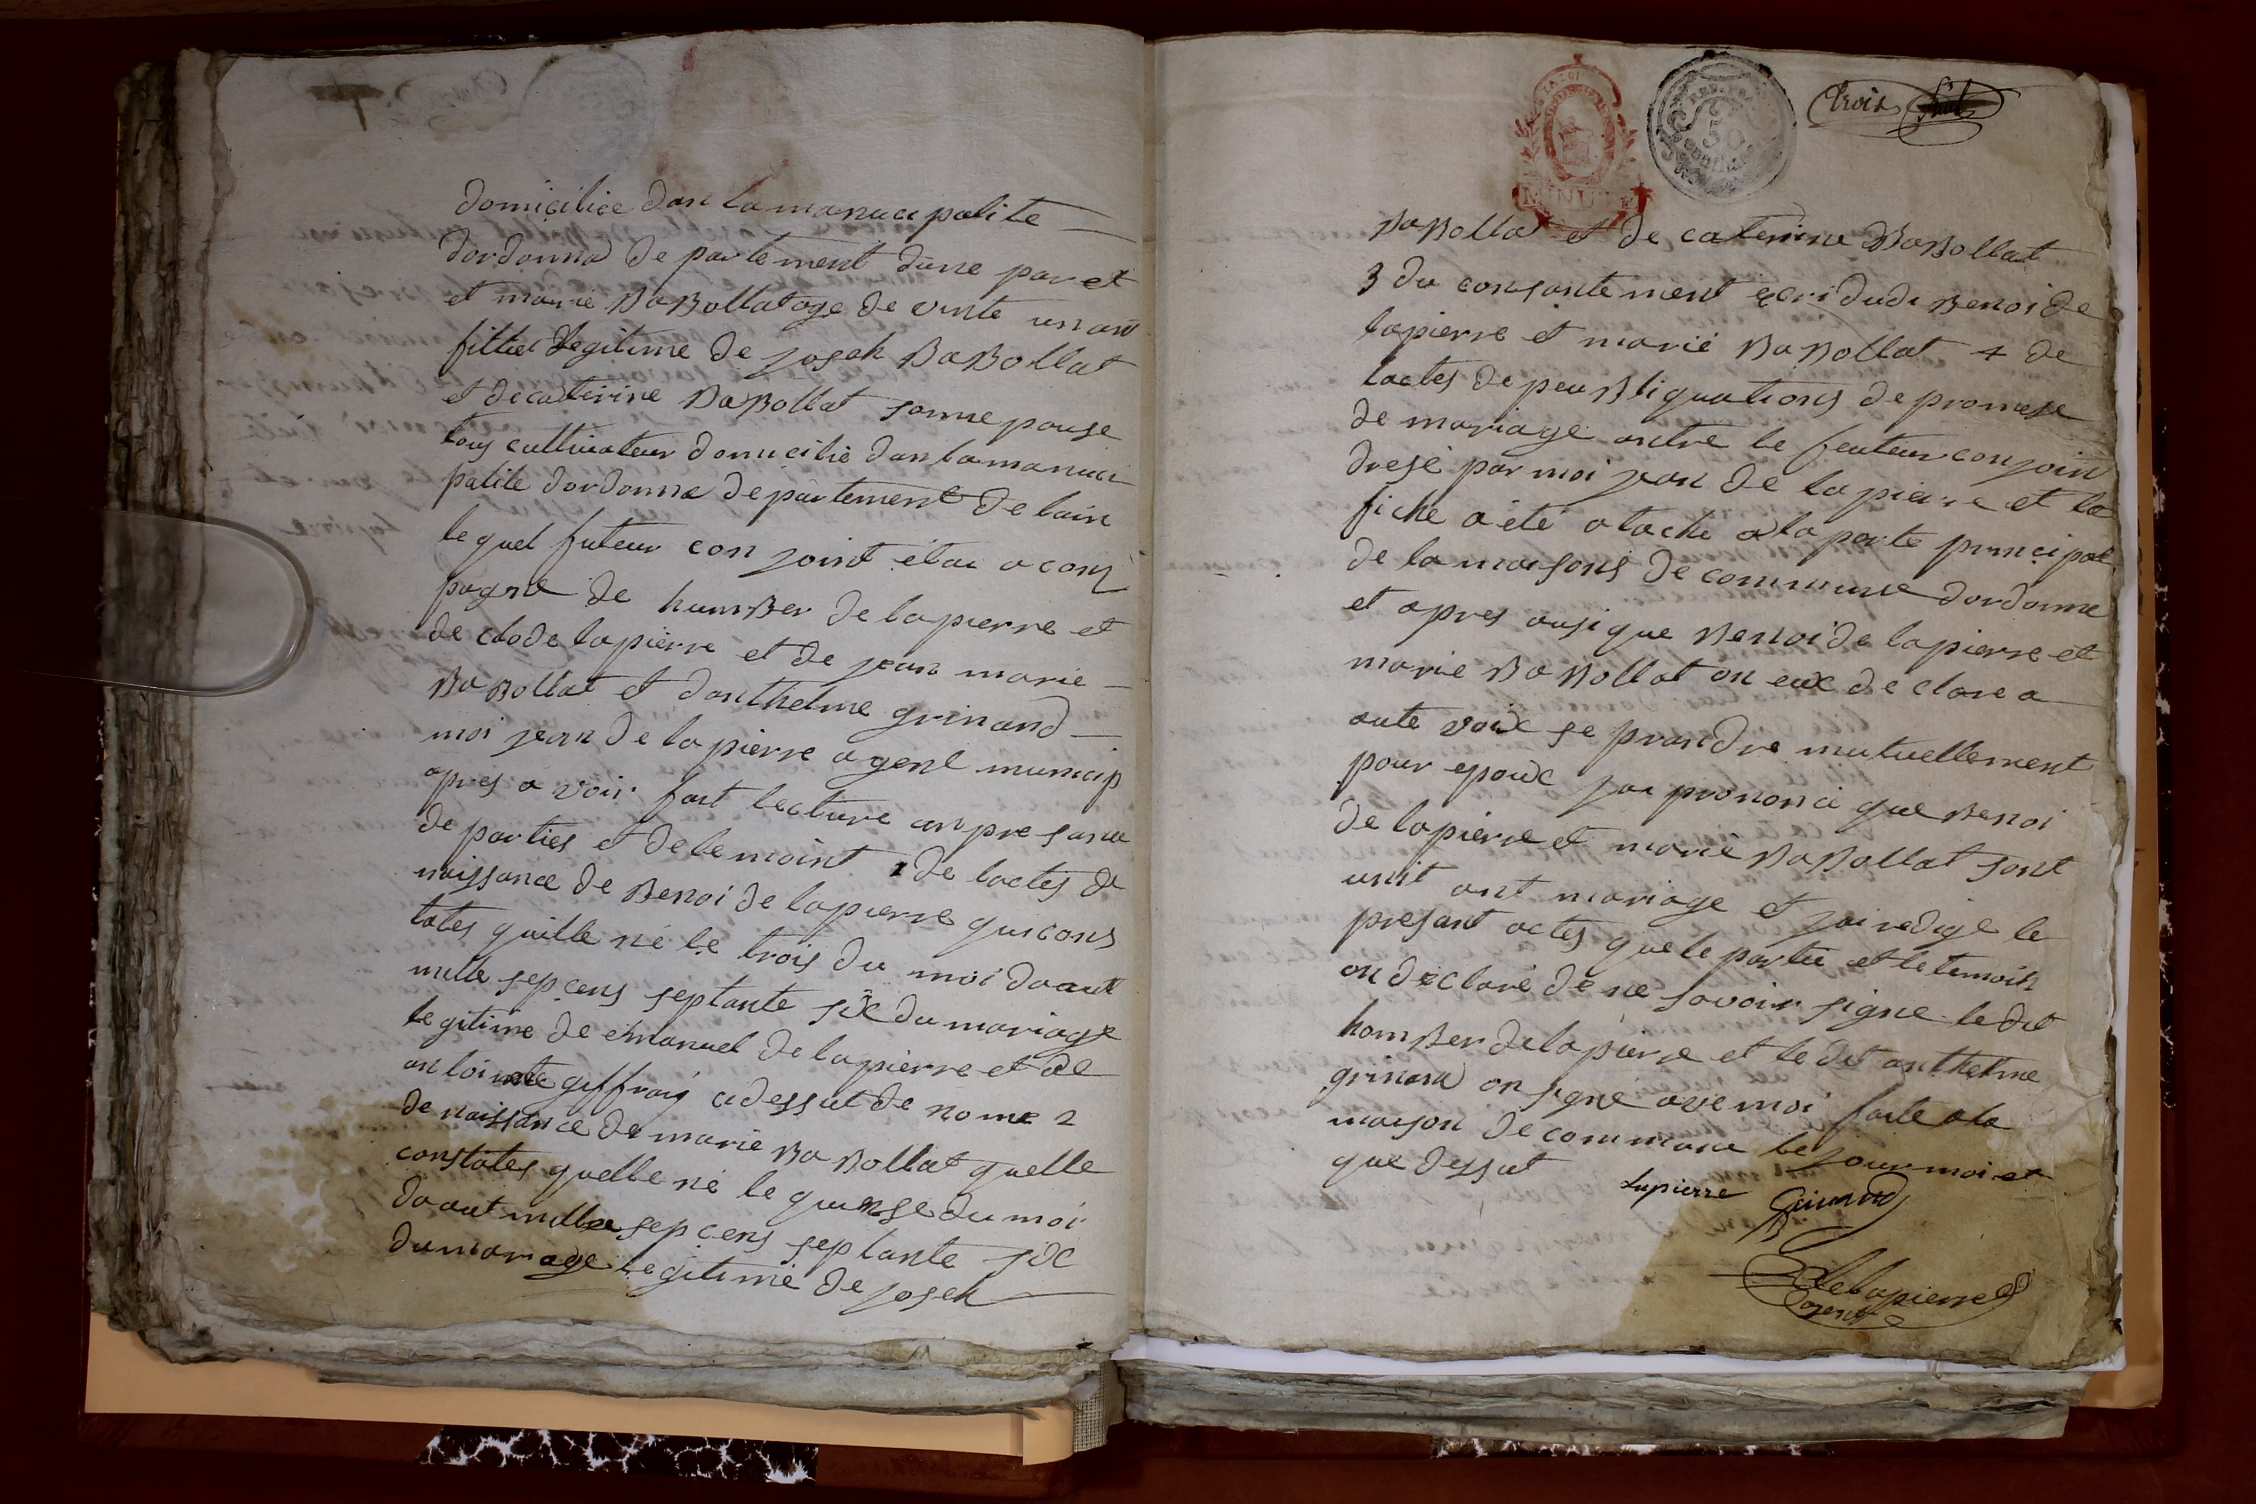 domicilice dan la manuci palite
dordonna de partement dune par et
et marie Babollat age de vinte un an
fillie legitime de joseh Babollat
et de caterine Babollat sonne pouse
tous cultivateur domicilié dan la manuci
palite dordonna departement de lain
le quel futeur con joint étai a com
pagne de humber de lapierre et
de clode lapierre et de jean marie
Babollat et danthelme grinand
moi jean de lapierre agent municip
apres a voir fait lecture an pre sance
de parties et de temoint 1 de lactes de
naissance de Benoi de lapierre qui cons
tates quille né le trois du moi daout
mille sepcens septante six du mariage
legitime de emanuel de lapierre et de
antoinete geffray cidessut de nome 2
de naissance de marie Babollat quelle
constates quelle né le quinse du moi
daout mille sepcens septante six
du mariage legitime de joseh
trois
LA LOI
MINUTE
REP. FRA.
50
CENTIMES
Babollat et de caterine Babollat
3 du consantement ecri dudi Benoi de
lapierre et marie Babollat 4 de
lactes de peubliquations de promese
de mariage antre le feuteur conjoin
dresé par moi jean de lapierre et la
fiche a été atache a la porte principal
de la maisons de commune dordonne
et apres ausi que Benoi de lapierre et
marie Babollat on eux de clare a
aute voix se prandre mutuellement
pour epoux jai prononcé que Benoi
de lapierre et marie Babollat sont
unit ant mariage et jai redige le
presant actes que le partie et le temoin
on déclaré de ne savoir signe le dit
homber de lapierre et le dit anthelme
grinand on signe ave moi faite a la
maison de commune le jour moi et
que dessut
Lapierre Grinand
Delapierre
agent